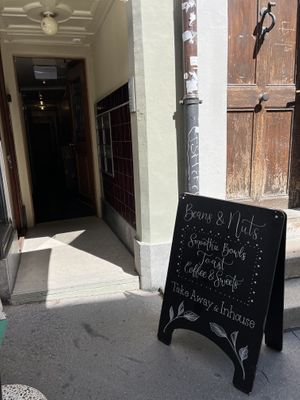 Beans & Nuts
Smoothie Bowls
Toast
Coffee & Sweets
Take Away & Inhouse